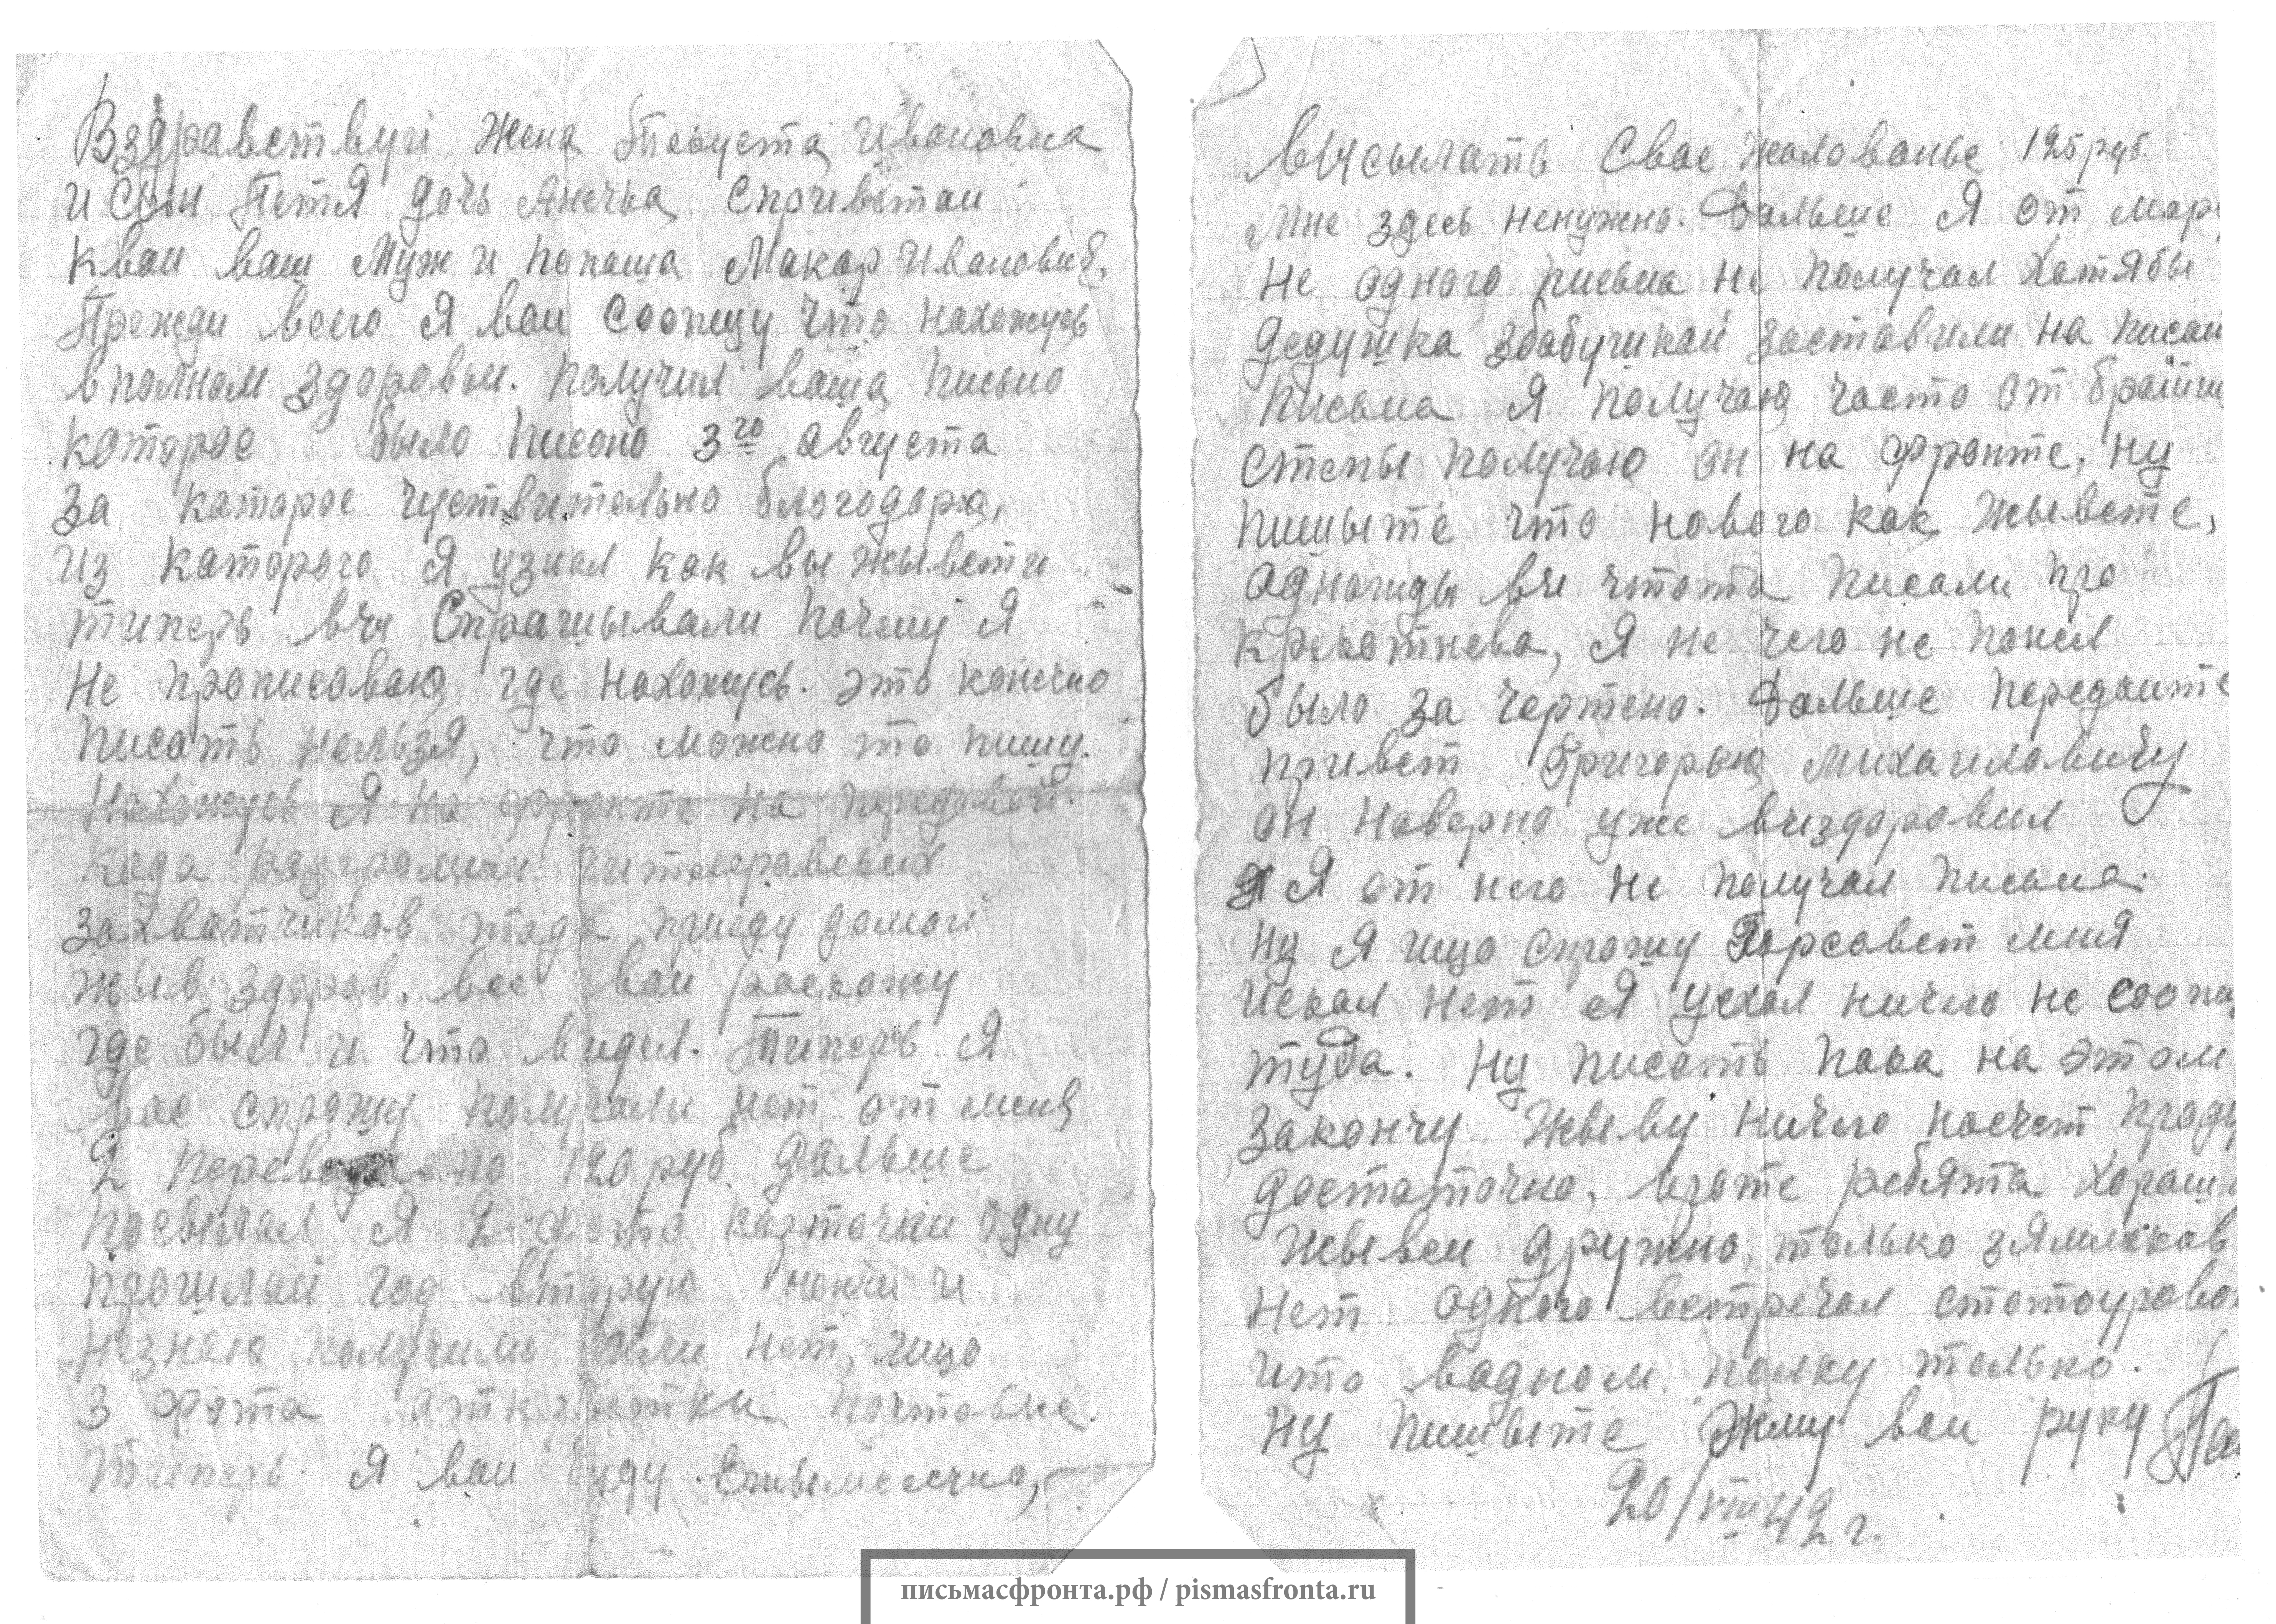 Вздравствуй Жена Ивановна
и Сын Петя дочь Анечка Сприветом
квам ваш Муж и папаша Макар Иванович,
Прежди всего Я вам Соопщу что нахожусь
вполном здоровьи. Получил ваша письмо
каторое было писано 3го августа
За каторое чуствительно благодарю,
Из каторого Я узнал как вы жывети
типерь вы Спрашывали почему Я
Не прописоваю где нахожусь. это конечно
писать нельзя, что можно то пишу.
Нахожусь Я на фронте на передовой.
Када разгромим гитлеравских
захватчиков тада приеду домой
жыв здоров, все вам раскажу
где был и что видел. Типерь Я
Вас спрошу получали нет от меня
2 перевода по 120 руб. Дальше
посылал Я 2 фото карточки одну
прошлай год вторую и
Незнаю получили или нет, ищо
3 фота аткрытки
Типерь Я вам буду
Высылать Свае жалованье 125 руб.
Мне здесь ненужно. Дальше Я от мар
Не одного письма не получал Хотябы
дедушка збабушкай заставили на писат
Письма Я получаю часто от
Степы получаю он на фронте, ну
пишыте что нового как жывете,
Одножды вы штота писали про
Я не чего не понел
было за чертено. Дальше передайте
привет Григорью Михайлавичу
он наверно уже выздоровил
Я от него не получал письма.
Ну Я ищо спрошу Горсавет миня
искал нет Я уехал ничего не соопщ
туда. Ну писать пака на этом
закончу Жыву ничего насчет проду
достаточно, в роте ребята Хороши
Жывем дружно, только зямлякав
нет одного встречал
что водном полку только.
Ну пишыте Жму вам руку Пап
20/VIII 42 г.
письмасфронта.рф / pismasfronta.ru